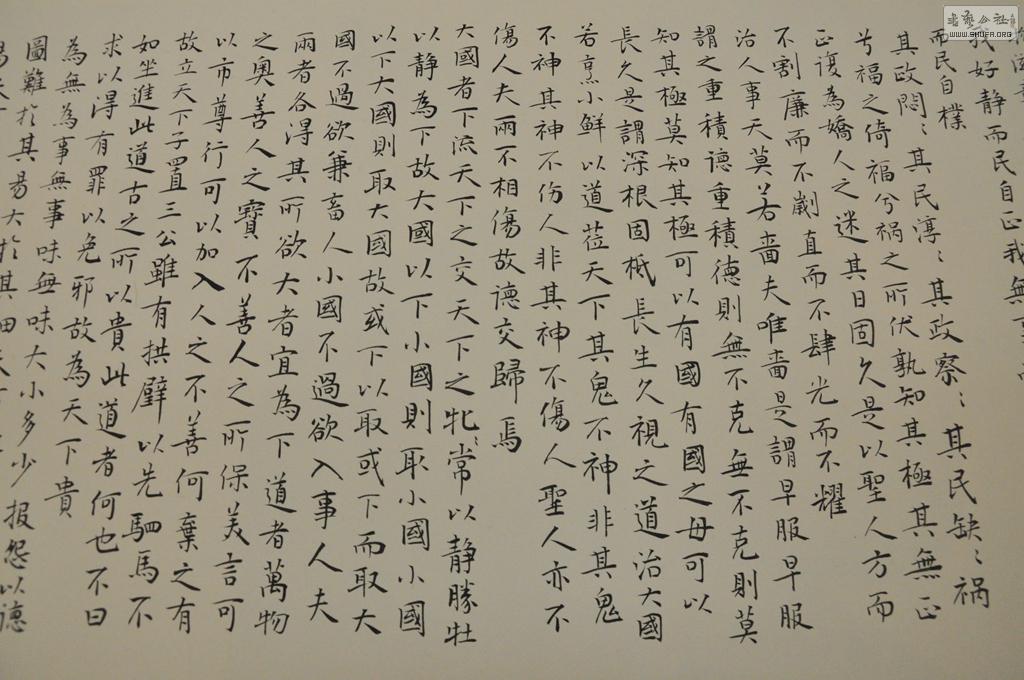 我好静而民自正我無事
而民自樸
其政悶〻其民淳〻其政察〻其民缺〻祸
兮福之倚福兮祸之所伏孰知其極其無正
正復為嬌人之迷其日固久是以聖人方而
不割廉而不歲直而不肆光而不耀
治人事天莫若嗇夫唯嗇是謂早服早服
謂之重積德重積德則無不克無不克則莫
知其極莫知其極可以有國有國之母可以
長久是謂深根固柢長生久視之道治大國
若烹小鮮以道莅天下其鬼不神非其鬼
不神其神不伤人非其神不傷人聖人亦不
傷人夫兩不相傷故德交歸焉
大國者下流天下之交天下之牝〻常以静勝牡
以静為下故大國以下小國則取小國小國
以下大國則取大國故或下以取或下而取大
國不過欲兼畜人小國不過欲入事人夫
兩者各得其所欲大者宜為下道者萬物
之奥善人之寶不善人之所保美言可
以市尊行可以加入人之不善何棄之有
故立天下子置三公雖有拱璧以先駟馬不
如坐進此道古之所以貴此道者何也不曰
求以得有罪以免邪故為天下貴
為無為事無事味無味大小多少报怨以德
圖難於其易大於其細天下
書藝公社
WWW.SHUFA.ORG